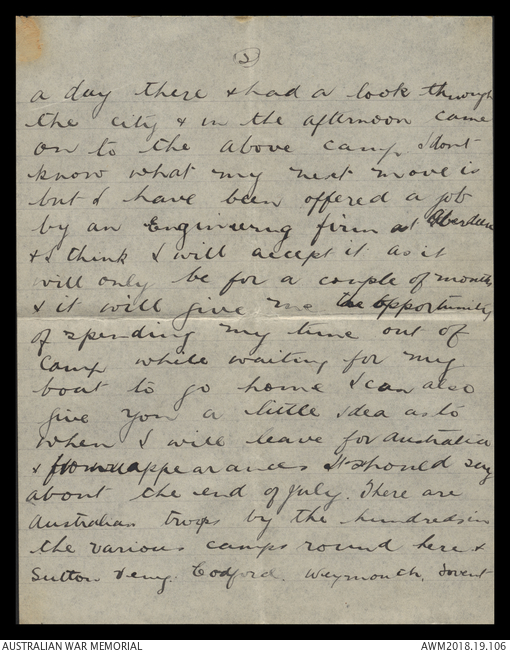 (2)
a day there & had a look through
the city & in the afternoon came
on to the above camp I dont
know what my next move is
but I have been offered a job
by an Engineering firm at Aberdeen
& I think I will accept it as it
will only be for a couple of months
& it will give me the opportunity
of spending my time out of
camp while waiting for my
boat to go home I can also
give you a little idea as to
when I will leave for Australia
& from appearances I should say
about the end of July. There are
Australian troops by the hundreds in
the various camps round here &
Sutton Veny. Codford. Weymouth.
AUSTRALIAN WAR MEMORIAL
AWM2018.19.106